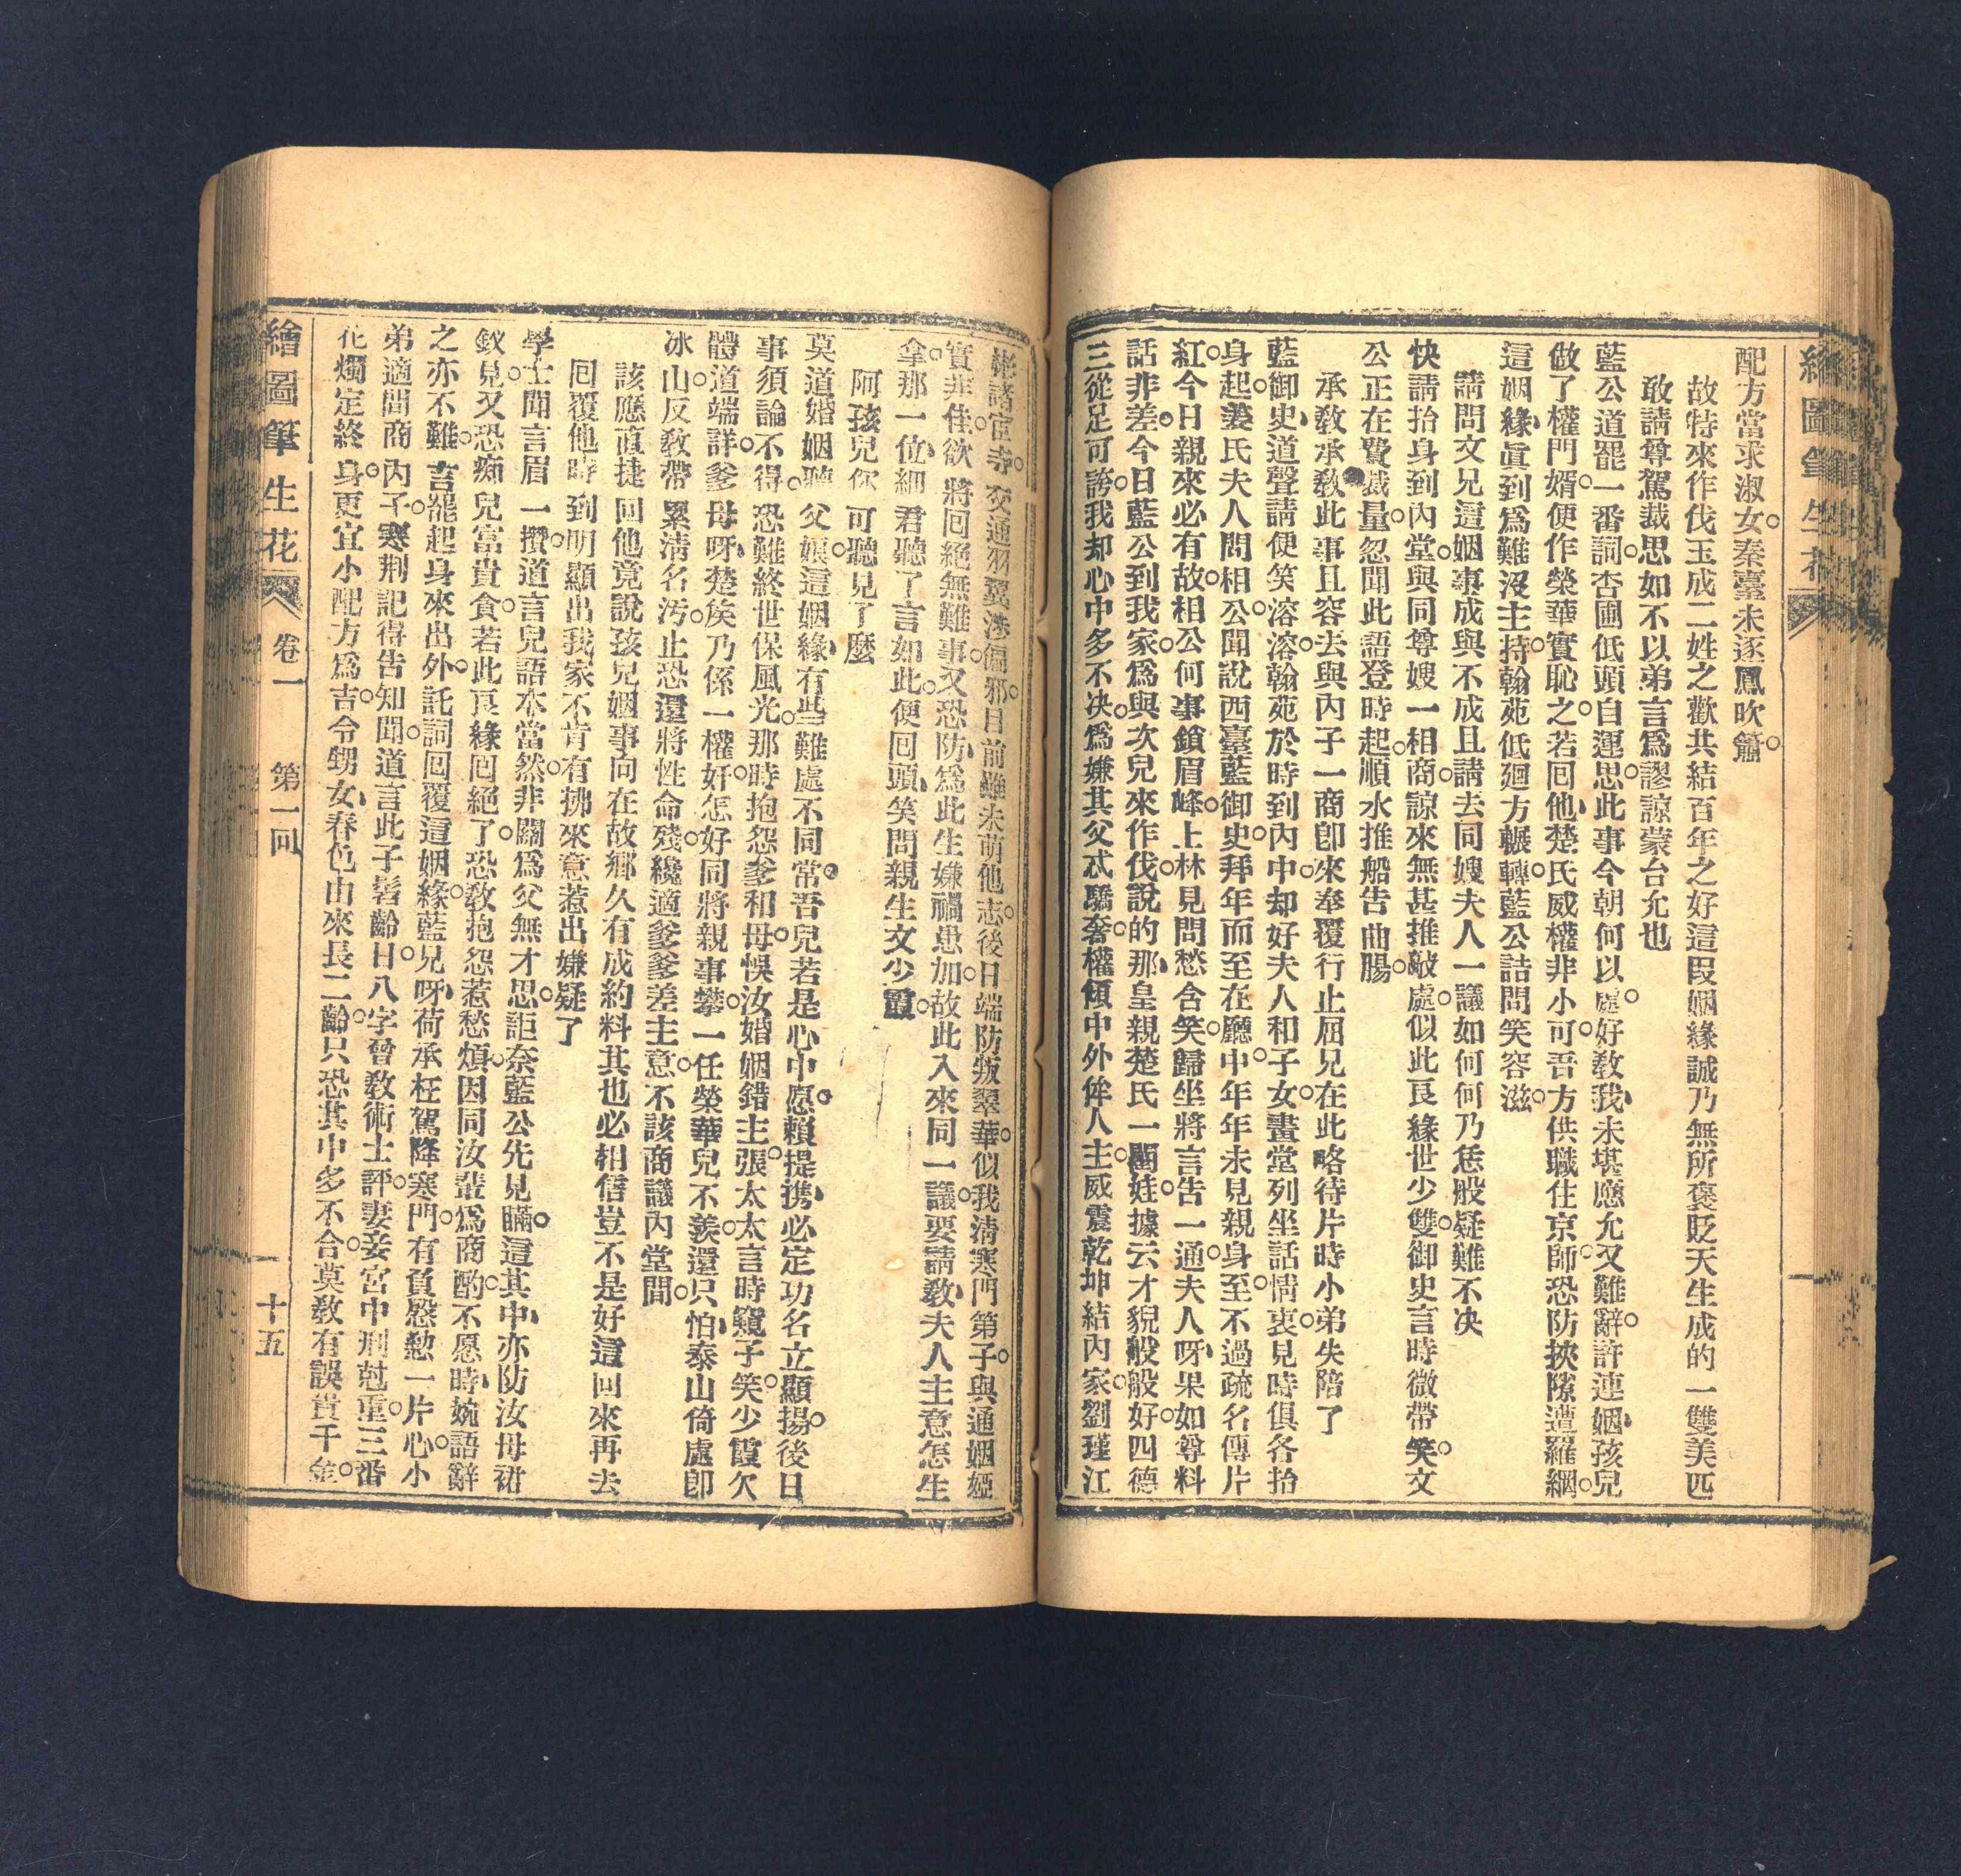 配方當求淑女○秦臺未逐鳳吹簫○
故特來作伐玉成二姓之歡共結百年之好這叚姻緣誠乃無所褒貶天生成的一雙美匹
敢請尊駕裁思如不以弟言爲謬諒蒙台允也
藍公道罷一番詞○杏圃低頭自運思○此事今朝何以處○好敎我未堪應允又難辭○許連姻孩兒
做了權門婿○便作榮華實恥之○若回他楚氏威權非小可○吾方供職住京師○恐防挾隙遭羅網○
這姻緣眞到爲難沒主持○翰苑低廻方輾轉○藍公詰問笑容滋○
請問文兄這姻事成與不成且請去同嫂夫人一議如何何乃恁般疑難不决
快請抬身到內堂○與同尊嫂一相商○諒來無甚推敲處○似此良緣世少雙○御史言時微帶笑○文
公正在費裁量○忽聞此語登時起○順水推船告曲腸○
承敎承敎此事且容去與內子一商卽來奉覆行止屈兄在此略待片時小弟失陪了
藍御史道聲請便笑溶溶○翰苑於時到內中○却好夫人和子女○畫堂列坐話情衷○見時俱各抬
身起○姜氏夫人問相公○聞說西臺藍御史○拜年而至在廳中○年年未見親身至○不過疏名傳片
紅○今日親來必有故○相公何事鎖眉峰○上林見問愁含笑○歸坐將言告一通○夫人呀果如尊料
話非差○今日藍公到我家○爲與次兒來作伐○說的那皇親楚氏一閨娃○據云才貌般般好○四德
三從足可誇○我却心中多不决○爲嫌其父忒驕奢○權傾中外侔人主○威震乾坤結內家○劉瑾江
彬諸宦寺○交通羽翼涉偏邪○目前雖未萌他志○後日端防叛翠華○似我淸寒門第子○與通姻婭
實非佳○欲將回絕無難事○又恐防爲此生嫌禍患加○故此入來同一議○要請敎夫人主意怎生
拿○那一位細君聽了言如此○便回頭笑問親生文少霞○
阿孩兒你可聽見了麼
莫道婚姻聽父孃○這姻緣有些難處不同常○吾兒若是心中愿○賴提携必定功名立顯揚○後日
事須論不得○恐難終世保風光○那時抱怨爹和母○悞汝婚姻錯主張○太太言時窺子笑○少霞欠
體道端詳○爹母呀楚矦乃係一權好○怎好同將親事攀○一任榮華兒不羨○還只怕泰山倚處卽
冰山○反敎帶累淸名汚○止恐還將性命殘○纔適爹爹差主意○不該商議內堂間○
該應直捷回他竟說孩兒姻事向在故鄉久有成約料其也必相信豈不是好這回來再去
回覆他時到明顯出我家不肯有拂來意惹出嫌疑了
學士聞言眉一攢○道言兒語本當然○非關爲父無才思○詎奈藍公先見瞞○這其中亦防汝母裙
釵見○又恐痴兒富貴貪○若此良緣回絕了○恐敎抱怨惹愁煩○因同汝輩爲商酌○不愿時婉語辭
之亦不難○言罷起身來出外○託詞回覆這姻緣○藍兄呀荷承枉駕降寒門○有負慇懃一片心○小
弟適間商內子○寒荆記得告知聞○道言此子髫齡日○八字曾敎術士評○妻妾宮中刑尅重○三番
花燭定終身○更宜小配方爲吉○令甥女春色由來長二齡○只恐其中多不合○莫敎有誤貴千金○
繪圖筆生花 卷一 第一回 十五